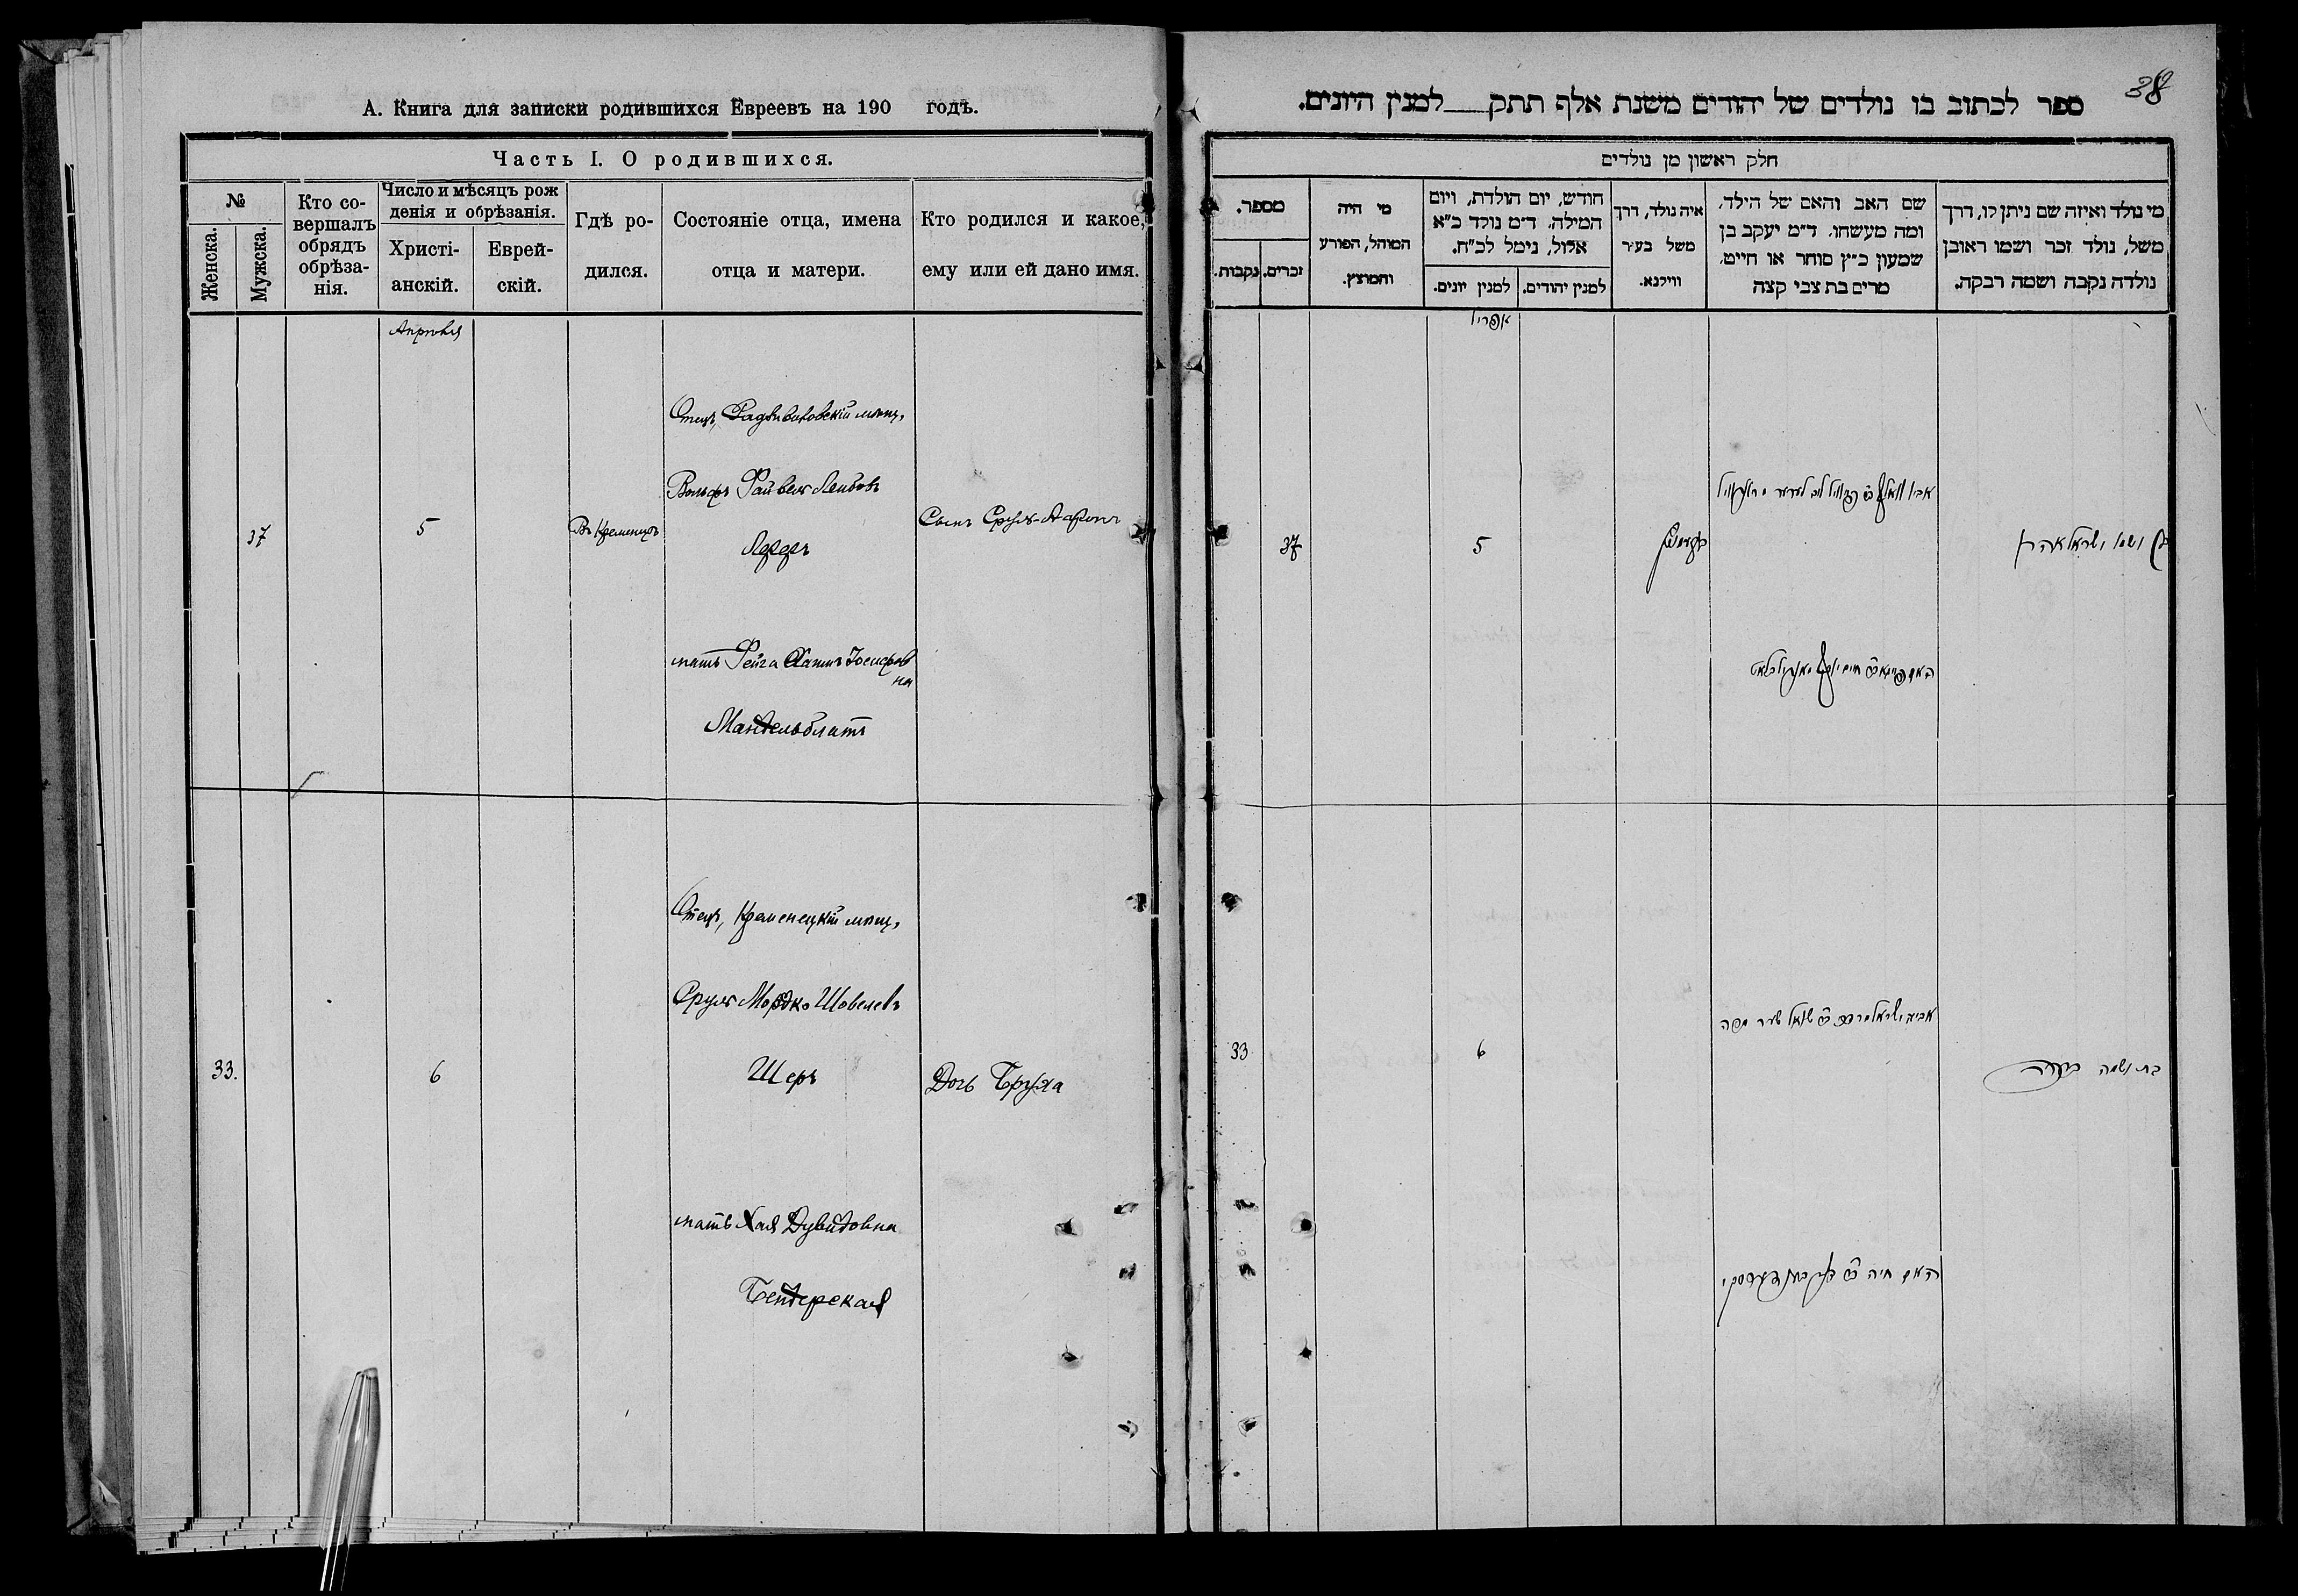 А. Книга для записки родившихся Евреевъ на 190 годъ.
Часть I. О родившихся.
№
Женска.
Мужска.
Кто со-
вершалъ
обрядъ
обрѣза-
нія.
Число и мѣсяцъ рож
денія и обрѣзанія.
Христі-
анскій.
Еврей-
скій.
Гдѣ ро-
дился.
Состояніе отца, имена
отца и матери.
Кто родился и какое,
ему или ей дано имя.
Апрѣля
37
5
Въ Кременцѣ
Отецъ, Радзивиловскій мѣщ.
Вольфъ Файвель Лейбовъ
мать Фейга Хаимъ Іосифов
на
Мандельблатъ
Сынъ Сруль-Аронъ
33.
6
Отецъ, Кременецкій мѣщ.
Сруль Мордко Шовелевъ
Шеръ
мать Хая Дувидовна
Бендерская
Дочь Бруха
38
ספר לכתוב בו נולדים של יהודים משנת אלף תתק למנין היונים.
חלק ראשון מן נולדים
מספר.
נקבות.
זכרים.
מי היה
המוהל, הפורע
והמוצץ.
חודש, יום הולדת, ויום
המילה. ד״מ נולד כ״א
אלול, נימל לכ״ח.
למנין יונים.
למנין יהודים.
איה נולד, דרך
משל בעיר
ווילנא.
שם האב והאם של הילד,
ומה מעשהו. ד״מ יעקב בן
שמעון כ״ץ סוחר או חייט,
מרים בת צבי קצה
מי נולד ואיזה שם ניתן לו, דרך
משל, נולד זכר ושמו ראובן
נולדה נקבה ושמה רבקה.
אפריל
37
5
בן ושמו ישראל אהרן
33
6
בת ושמה ברכה